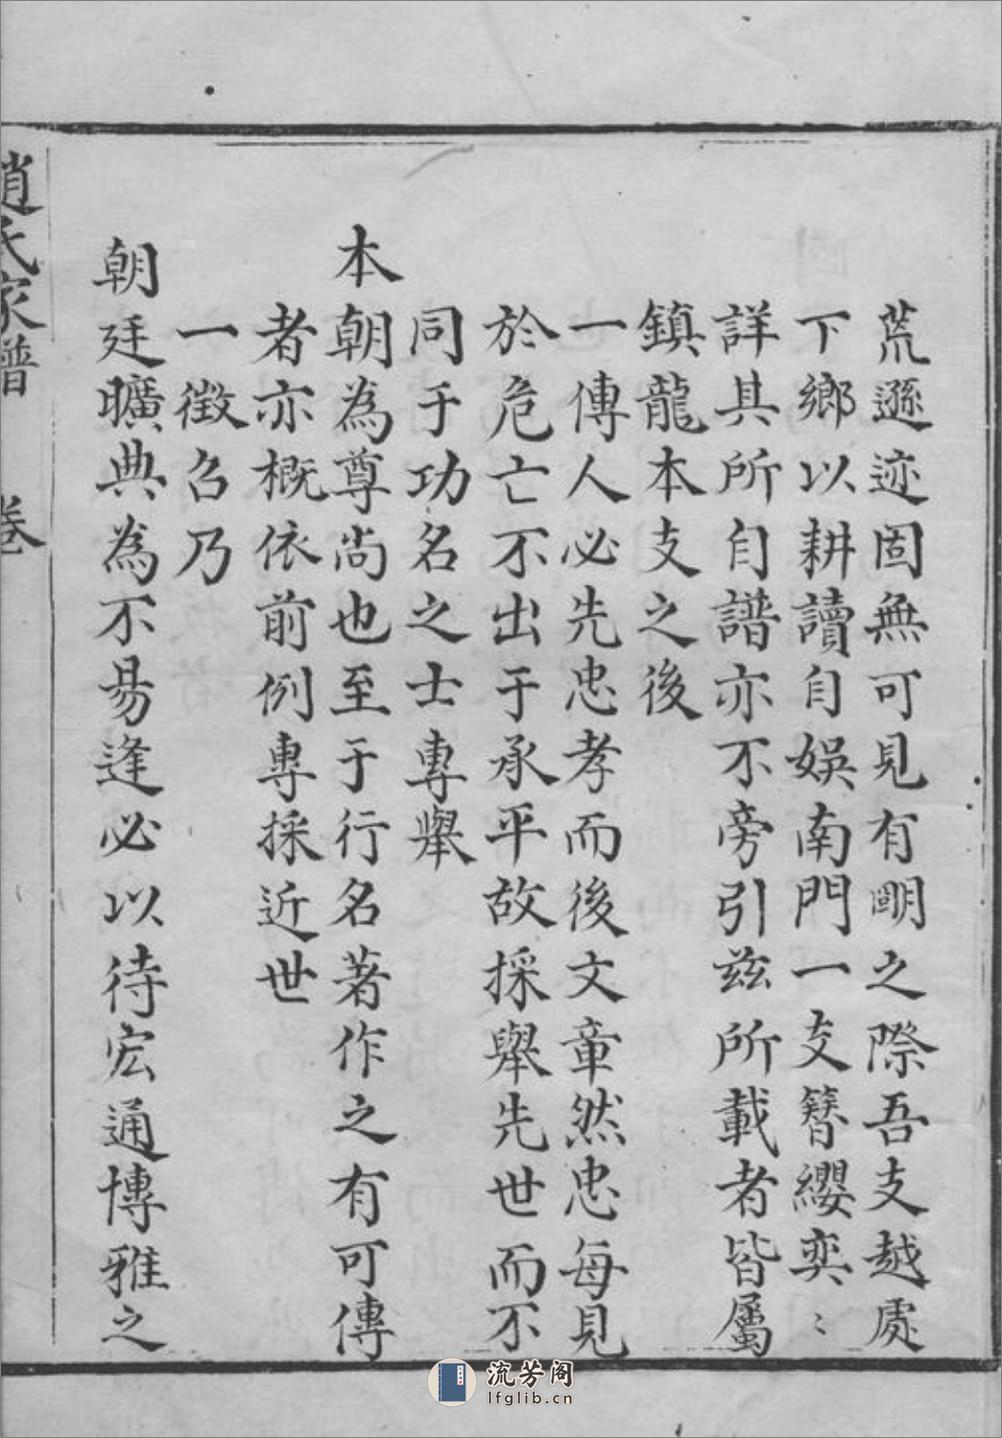 荒遯迹固無可見有明之際吾支越處
下鄉以耕讀自娛南門一支簪纓奕〻
詳其所自譜亦不旁引茲所載者皆屬
鎮龍本支之後
一傳人必先忠孝而後文章然忠每見
於危亡不出于承平故採舉先世而不
同于功名之士專舉
本朝為尊尚也至于行名著作之有可傳
者亦概依前例專採近世
一徵召乃
朝廷曠典為不易逢必以待宏通博雅之
趙氏家譜 卷
流芳阁
lfglib.cn